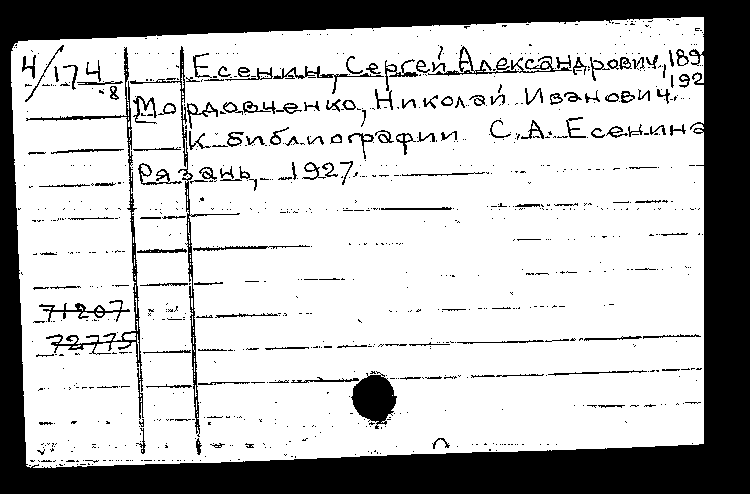 4/174 Есенин, Сергей Александрович, 189
-8 192
Мордовченко, Николай Иванович.
К библиографии С.А. Есенина
Рязань, 1927.
71207
72775